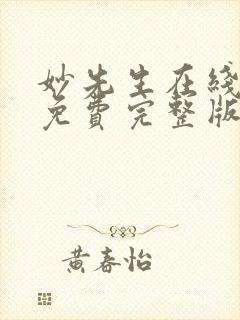 妙先生在綫
免費完整版
黃春怡